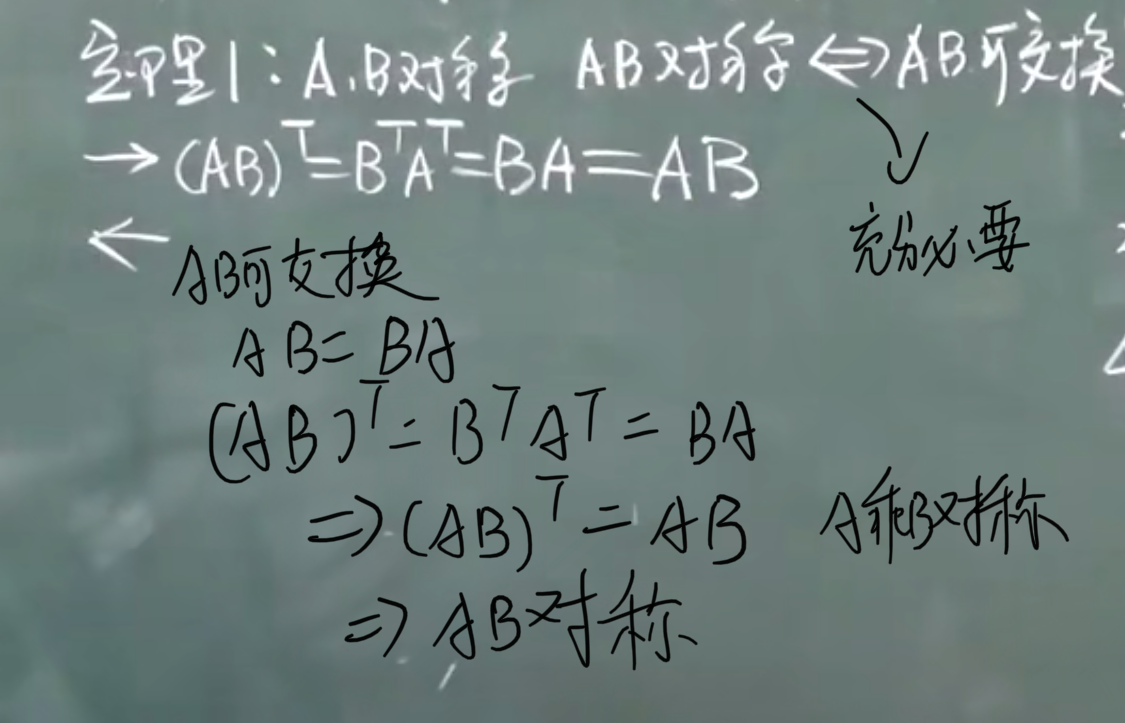 定理1:A.B对称 AB对称⇔AB可交换
→(AB)ᵀ=BᵀAᵀ=BA=AB
←
充分必要
AB可交换
AB=BA
(AB)ᵀ=BᵀAᵀ=BA
⇒(AB)ᵀ=AB A乘B对称
⇒AB对称